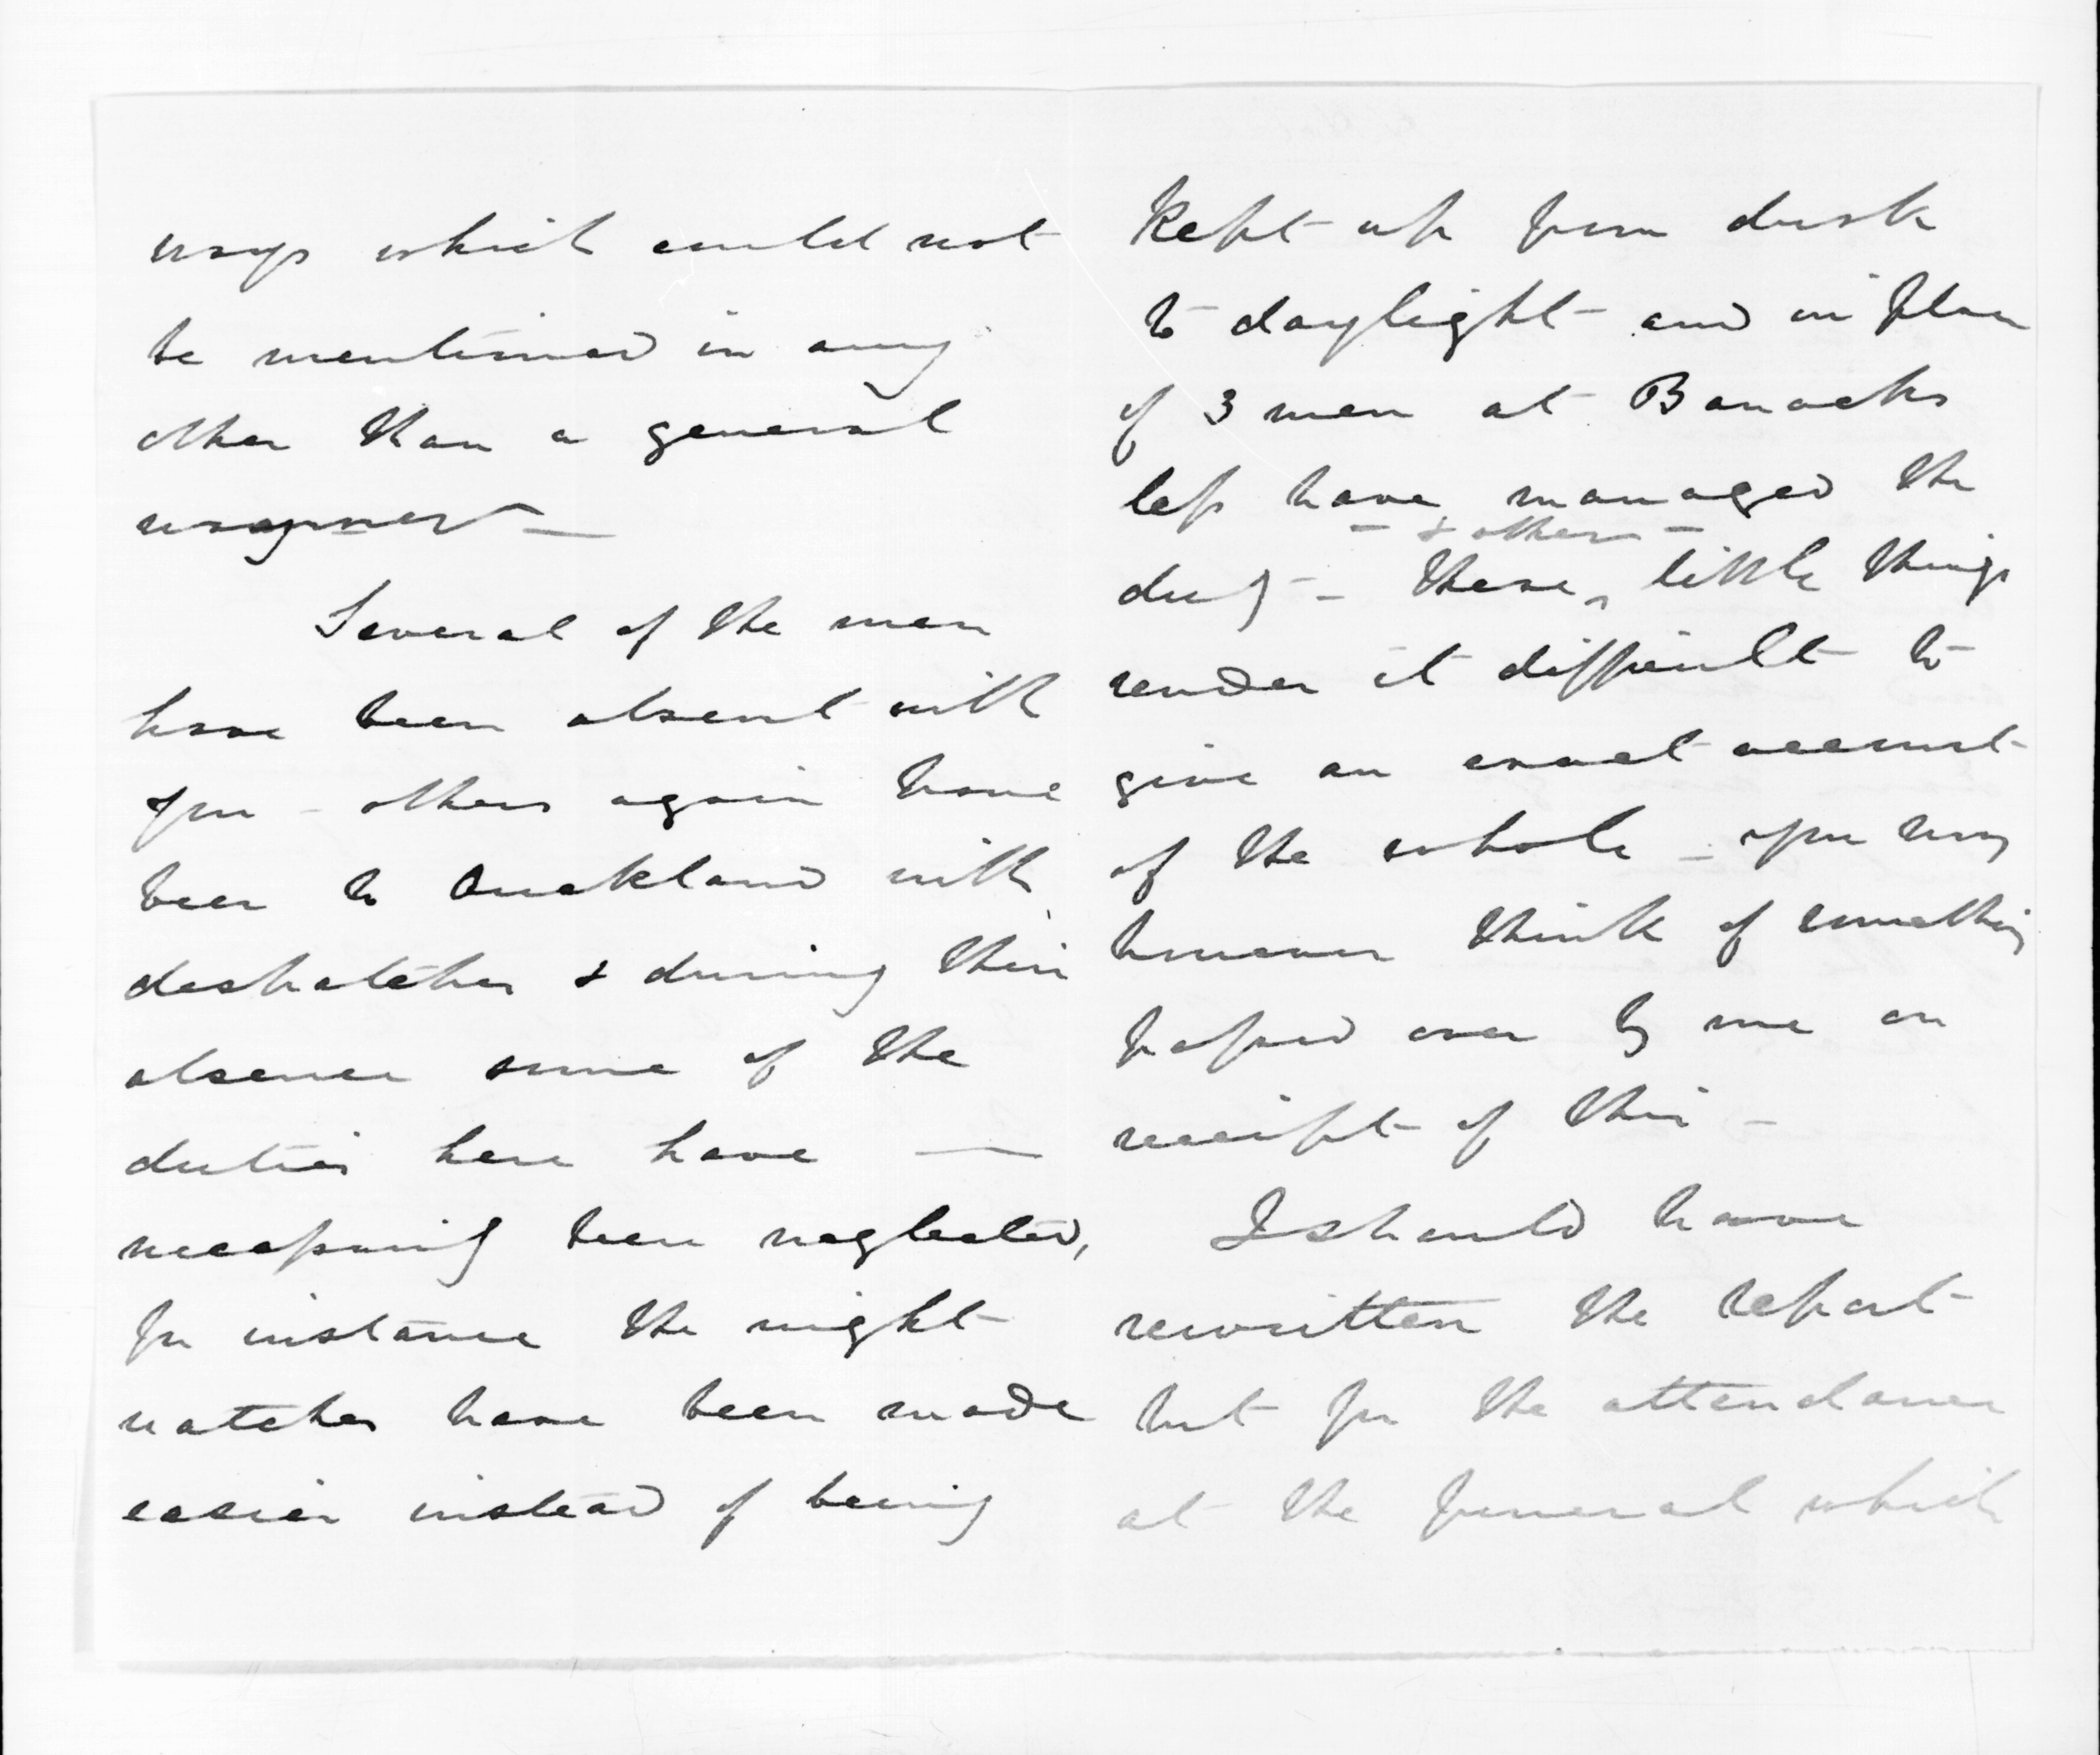 ways which could not
be mentioned in any
other than a general
way
Several of the men
have been absent with
you - others again have
been to Auckland with
despatches & during their
absence some of the
duties here have —
necessarily been neglected,
for instance the night
watches have been made
easier instead of being
kept up from dusk
to daylight - and in place
of 3 men at Barracks
less have managed the
duty - these & other little things
render it difficult to
give an exact account
of the whole - you may
however think of something
passed over by me on
receipt of this -
I should have
rewritten the report
but for the attendance
at the funeral which